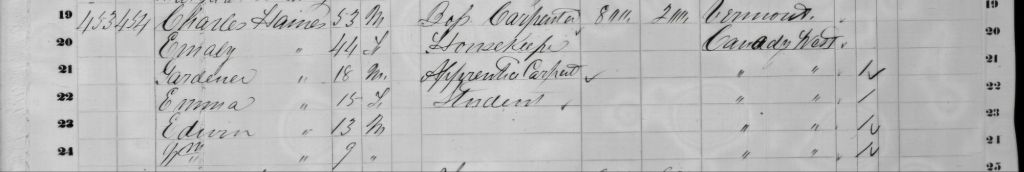 19 453 454 Charles Haines 53 M Bos Carpenter 800 200 Vermont 19
20 Emaly " 44 F Housekeeper Canady West 20
21 Gardener " 18 M Apprentice Carpent " " 1 21
22 Emma " 15 F Student " " 1 22
23 Edwin " 13 M " " 1 23
24 Wm " 9 " " " 1 24
25